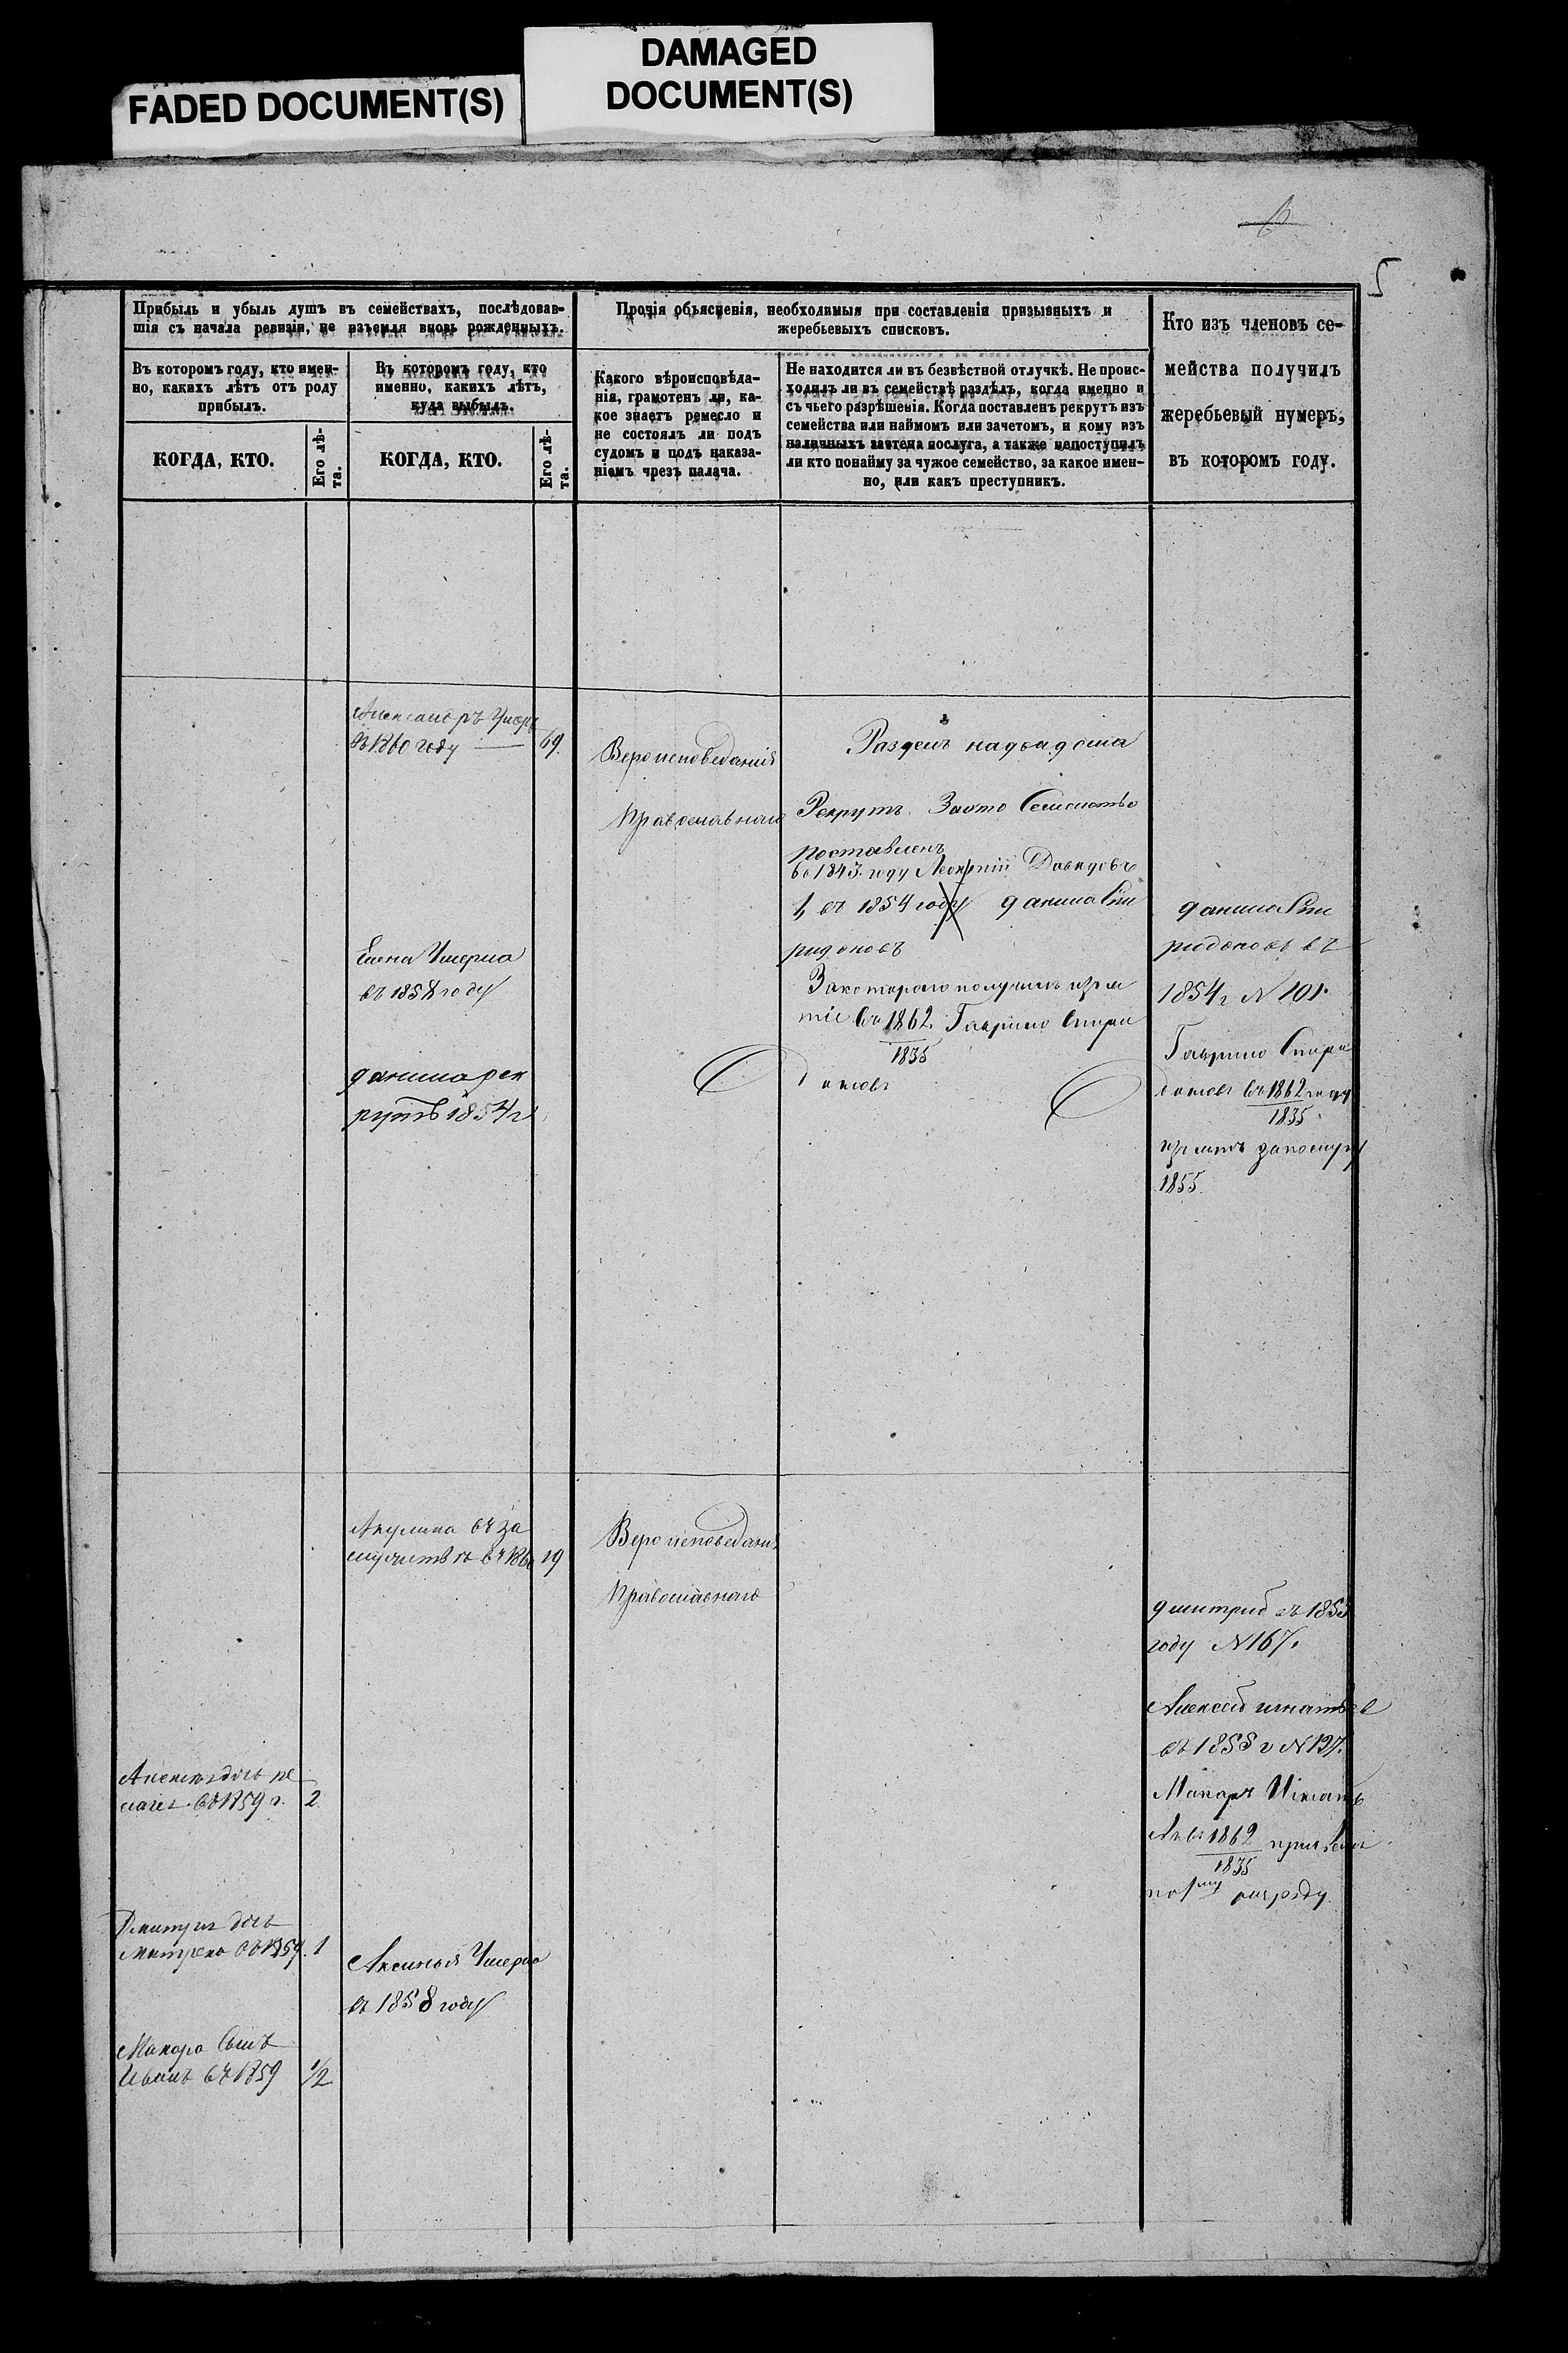 FADED DOCUMENT(S)
DAMAGED
DOCUMENT(S)
5
Прибыль и убыль душъ въ семействахъ, послѣдовав-
шія съ начала ревизіи, не изъемля вновь рожденныхъ.
Въ которомъ году, кто имен-
но, какихъ лѣтъ отъ роду
прибылъ.
КОГДА, КТО.
Его лѣ-
та.
Въ которомъ году, кто
именно, какихъ лѣтъ,
куда выбылъ.
КОГДА, КТО.
Его лѣ-
та.
Прочія объясненія, необходимыя при составленіи призывныхъ и
жеребьевыхъ списковъ.
Какого вѣроисповѣда-
нія, грамотенъ ли, ка-
кое знаетъ ремесло и
не состоялъ ли подъ
судомъ и подъ наказа-
ніемъ чрезъ палача.
Не находится ли въ безвѣстной отлучкѣ. Не проис-
ходилъ ли въ семействѣ раздѣлъ, когда именно и
съ чьего разрѣшенія. Когда поставленъ рекрутъ изъ
семейства или наймомъ или зачетомъ, и кому изъ
наличныхъ зачтена послуга, а также непоступилъ
ли кто понайму за чужое семейство, за какое имен-
но, или какъ преступникъ.
Кто изъ членовъ се-
мейства получилъ
жеребьевый нумеръ,
въ которомъ году.
Александръ Умеръ
въ 1860 году 69.
Вероисповеданія
Православнаго
Разделъ надвадома
Рекрутъ. Заэто Семейство
поставленъ
въ 1843. году Давидовъ
1, въ 1854 году данила Спи
ридоновъ
Закотораго получилъ
въ 1862 Гаврило Спири
1835
доновъ
Елена Умерла
въ 1858 году
данила рек
рутъ 1854 г
данила Спи
ридоновъ въ
1854 г N 101.
Гаврило Спири
доновъ въ 1862 году
1835
1855.
Акулина въ за
мужество въ 1860 19
Вероисповедания
Православнаго
дмитрий въ 1853
году N 167.
Алексей игнатьев
въ 1858 г N 127.
Макаръ Игнать
въ 1862
1835
по 1му разряду.
въ 1859 г. 2
Дмитрия дочь
Матрена въ 1859. 1
Аксинья Умерла
въ 1858 году
Макара Сынъ
Иванъ въ 1859 1/2